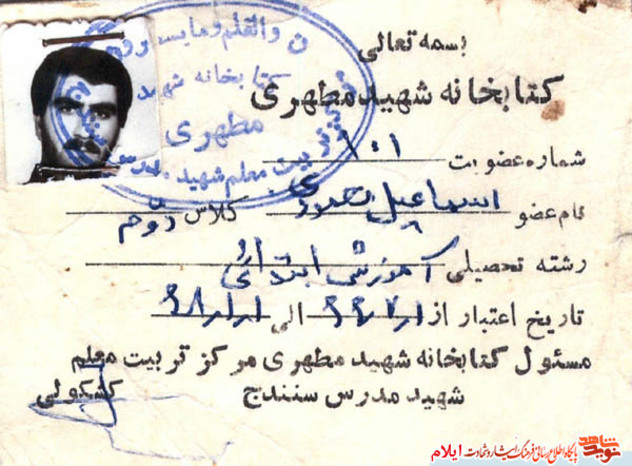 بسمه تعالی
کتابخانه شهید مطهری
شماره عضویت ۱۰۱
نام عضو اسماعیل کلاس دوم
رشته تحصیلی آموزش ابتدائی
تاریخ اعتبار از الی
مسئول کتابخانه شهید مطهری مرکز تربیت معلم
شهید مدرس سنندج کشکولی
ن والقلم و ما یسطرون
کتابخانه شهید
مطهری
تربیت معلم شهید مدرس
نوید شاهد
پایگاه اطلاع رسانی فرهنگ ایثار و شهادت ایلام